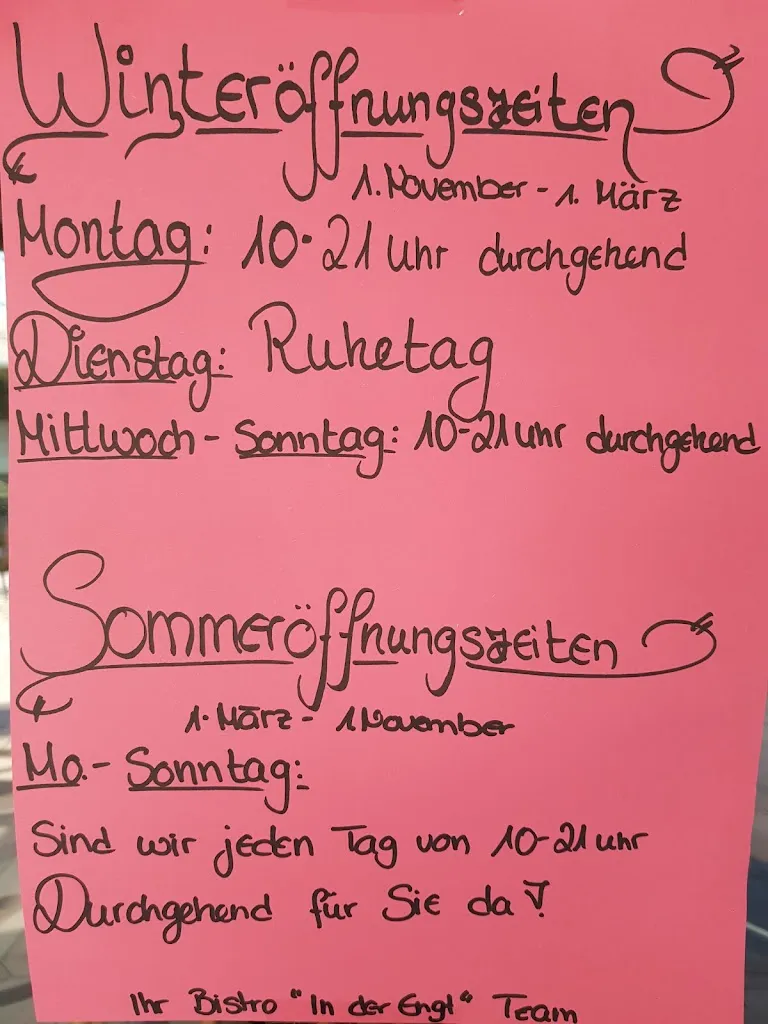 Winteröffnungszeiten
1. November - 1. März
Montag: 10-21 Uhr durchgehend
Dienstag: Ruhetag
Mittwoch - Sonntag: 10-21 Uhr durchgehend
Sommeröffnungszeiten
1. März - 1 November
Mo. - Sonntag:
Sind wir jeden Tag von 10-21 uhr
Durchgehend für Sie da!
Ihr Bistro "In der Engl" Team